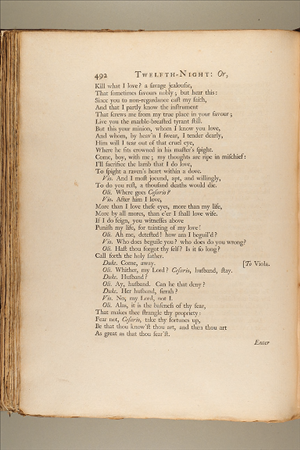 492 TWELFTH-NIGHT: Or,
Kill what I love? a savage jealousie,
That sometimes savours nobly; but hear this:
Since you to non-regardance cast my faith,
And that I partly know the instrument
That screws me from my true place in your favour;
Live you the marble-breasted tyrant still.
But this your minion, whom I know you love,
And whom, by heav'n I swear, I tender dearly,
Him will I tear out of that cruel eye,
Where he sits crowned in his master's spight.
Come, boy, with me; my thoughts are ripe in mischief:
I'll sacrifice the lamb that I do love,
To spight a raven's heart within a dove.
Vio. And I most jocund, apt, and willingly,
To do you rest, a thousand deaths would die.
Oli. Where goes Cesario?
Vio. After him I love,
More than I love these eyes, more than my life,
More by all mores, than e'er I shall love wife.
If I do feign, you witnesses above
Punish my life, for tainting of my love!
Oli. Ah me, detested! how am I beguil'd?
Vio. Who does beguile you? who does do you wrong?
Oli. Hast thou forgot thy self? Is it so long?
Call forth the holy father.
Duke. Come, away. [To Viola.
Oli. Whither, my Lord? Cesario, husband, stay.
Duke. Husband?
Oli. Ay, husband. Can he that deny?
Duke. Her husband, sirrah?
Vio. No, my Lord, not I.
Oli. Alas, it is the baseness of thy fear,
That makes thee strangle thy propriety:
Fear not, Cesario, take thy fortunes up,
Be that thou know'st thou art, and then thou art
As great as that thou fear'st.
Enter